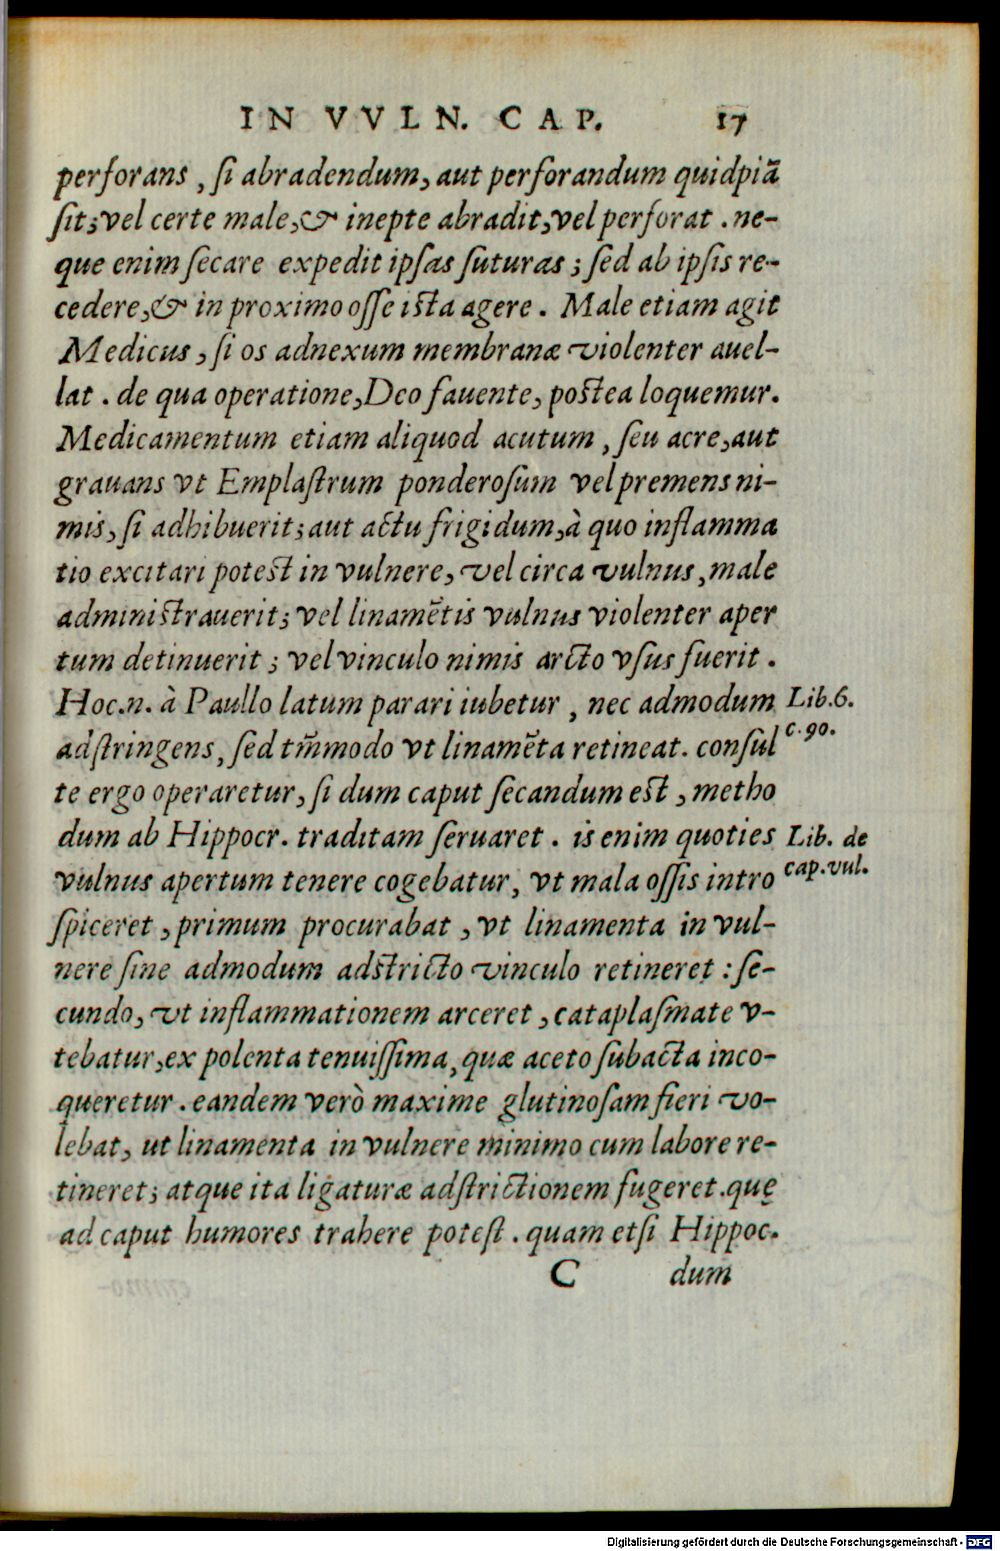 IN VVLN. CAP. 17
perforans, ſi abradendum, aut perforandum quidpiã
ſit; vel certe male, & inepte abradit, vel perforat. ne-
que enim ſecare expedit ipſas ſuturas; ſed ab ipſis re-
cedere, & in proximo oſſe iſta agere. Male etiam agit
Medicus, ſi os adnexum membranæ violenter auel-
lat. de qua operatione, Deo fauente, poſtea loquemur.
Medicamentum etiam aliquod acutum, ſeu acre, aut
grauans vt Emplaſtrum ponderoſum vel premens ni-
mis, ſi adhibuerit; aut actu frigidum, à quo inflamma
tio excitari poteſt in vulnere, vel circa vulnus, male
adminiſtrauerit; vel linamẽtis vulnus violenter aper
tum detinuerit; vel vinculo nimis arcto vſus fuerit.
Hoc.n. à Paullo latum parari iubetur, nec admodum Lib.6.
adſtringens, ſed tm̃modo vt linamẽta retineat. conſul c.90.
te ergo operaretur, ſi dum caput ſecandum eſt, metho
dum ab Hippocr. traditam ſeruaret. is enim quoties Lib. de
vulnus apertum tenere cogebatur, vt mala oſſis intro cap.vul.
ſpiceret, primum procurabat, vt linamenta in vul-
nere ſine admodum adſtricto vinculo retineret: ſe-
cundo, vt inflammationem arceret, cataplaſmate v-
tebatur, ex polenta tenuiſſima, quæ aceto ſubacta inco-
queretur. eandem verò maxime glutinoſam fieri vo-
lebat, ut linamenta in vulnere minimo cum labore re-
tineret; atque ita ligaturæ adſtrictionem fugeret. quę
ad caput humores trahere poteſt. quam etſi Hippoc.
C dum
Digitalisierung gefördert durch die Deutsche Forschungsgemeinschaft - DFG